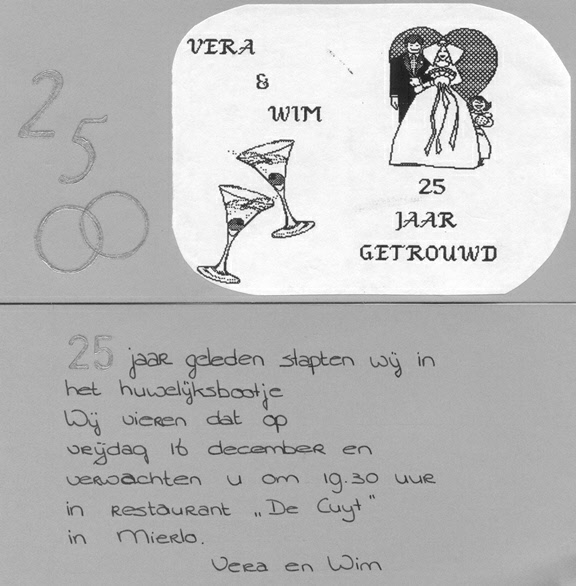 25
VERA
&
WIM
25
JAAR
GETROUWD
25 jaar geleden stapten wij in
het huwelijksbootje
Wij vieren dat op
vrijdag 16 december en
verwachten u om 19.30 uur
in restaurant „De Cuyt"
in Mierlo.
Vera en Wim